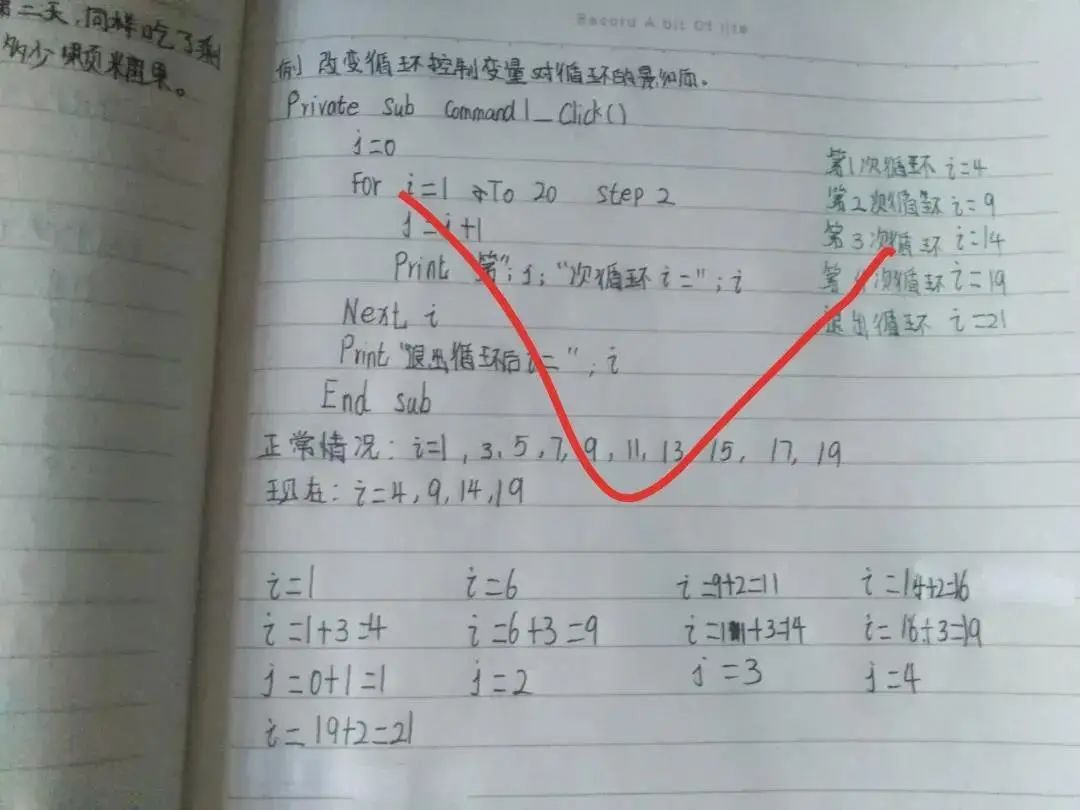 第二天,同样吃了剩
多少颗
果。
Record A bit Of life
例 改变循环控制变量对循环的影响。
Private sub Command1_Click()
j=0
For i=1 To 20 step 2
j=j+1
Print "第"; j; "次循环 i="; i
Next i
Print "退出循环后i="; i
End sub
第1次循环 i=4
第2次循环 i=9
第3次循环 i=14
第4次循环 i=19
退出循环 i=21
正常情况: i=1, 3, 5, 7, 9, 11, 13, 15, 17, 19
现在: i=4, 9, 14, 19
i=1 i=6 i=9+2=11 i=14+2=16
i=1+3=4 i=6+3=9 i=11+3=14 i=16+3=19
j=0+1=1 j=2 j=3 j=4
i=19+2=21